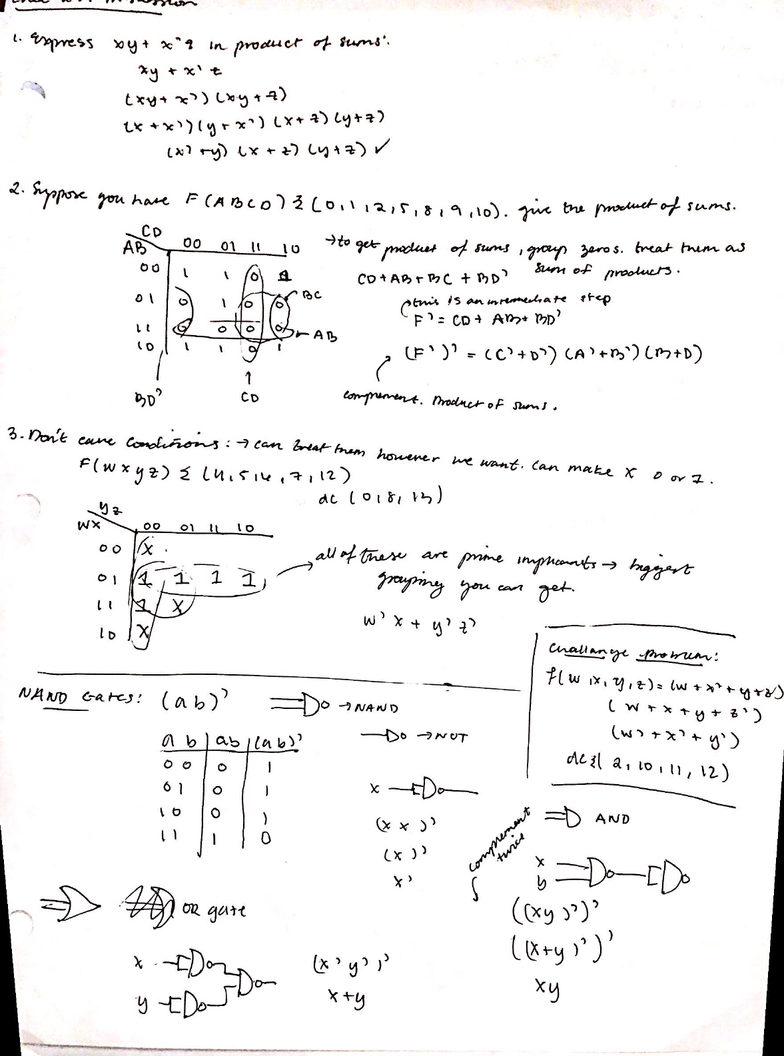 1. Express xy + x'z in product of sums:
xy + x' z
(xy + x') (xy + z)
(x + x') (y + x') (x + z) (y + z)
(x' + y) (x + z) (y + z) ✓
2. Suppose you have F(ABCD) Σ (0,1,2,5,8,9,10). give the product of sums.
CD
AB 00 01 11 10
00 1 1 0 1
01 0 1 0 0
11 0 0 0 0
10 1 1 0 1
BC
AB
BD'
CD
→ to get product of sums, group zeros. treat them as
sum of products.
CD + AB + BC + BD'
this is an intermediate step
F' = CD + AB + BD'
(F')' = (C' + D') (A' + B') (B + D)
complement. Product of sums.
3. Don't care Conditions: → can treat them however we want. Can make X 0 or 1.
F(wxyz) Σ (4,5,6,7,12)
dc (0,8,13)
yz
wx 00 01 11 10
00 X
01 1 1 1 1
11 1 X
10 X
→ all of these are prime implicants → biggest
grouping you can get.
w' x + y' z'
Challange problem:
f(w,x,y,z) = (w + x' + y + z)
(w + x + y + z')
(w' + x' + y')
dc Σ( 2,10,11,12)
NAND Gates: (ab)' → NAND
→ NOT
a b ab (ab)'
0 0 0 1
0 1 0 1
1 0 0 1
1 1 1 0
x
(x x)'
(x)'
x'
AND
complement
twice
x
y
((xy)')'
((x+y)')'
xy
OR gate
x
y
(x' y')'
x + y